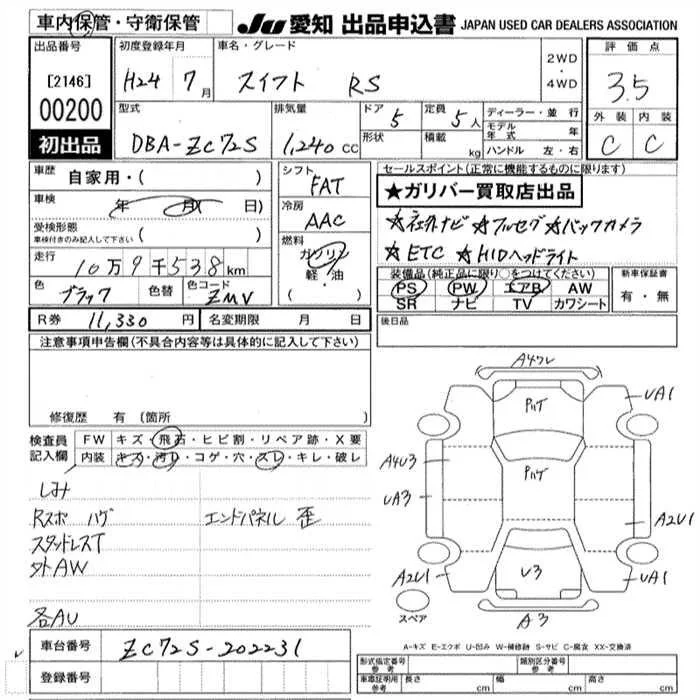 車内保管・守衛保管
JU 愛知 出品申込書 JAPAN USED CAR DEALERS ASSOCIATION
出品番号 初度登録年月 車名・グレード 2WD・4WD 評価点
[2146] H24 7月 スイフト RS 3.5
00200 型式 排気量 ドア 5 定員 5人 ディーラー・並行 外装 内装
初出品 DBA-ZC72S 1,240cc 形状 積載 kg モデル年式 年 C C
ハンドル 左・右
車歴 自家用・( ) シフト FAT セールスポイント(正常に機能するものに限ります)
車検 年 月( 日) 冷房 AAC ★ガリバー買取店出品
受検形態 車検付きのみ記入して下さい ( ) ☆社外ナビ ☆フルセグ ☆バックカメラ
走行 10万9千538km 燃料 ガソリン 軽・油 ( ) ☆ETC ☆HIDヘッドライト
色 ブラック 色替 色コード ZMV 装備品(純正品に限り○をつけてください) 新車保証書
PS PW エアB AW 有・無
SR ナビ TV カワシート
R券 11,330円 名変期限 月 日 後日品
注意事項申告欄(不具合内容等は具体的に記入して下さい)
修復歴 有(箇所
検査員記入欄 FW キズ・飛石・ヒビ割・リペア跡・X要
内装 キズ・汚レ・コゲ・穴・スレ・キレ・破レ
しみ
Rスポ ハゲ エンドパネル 歪
スタッドレスT
外AW
各AU
A4ワレ
UA1
PハT
A4U3
PハT
UA3
A2U1
A2U1
U3
UA1
スペア
A3
A-キズ E-エクボ U-凹み W-補修跡 S-サビ C-腐食 XX-交換済
車台番号 ZC72S-202231
登録番号
形式指定番号 参考 類別区分番号 参考
車庫証明用 参考 長さ cm 幅 cm 高さ cm